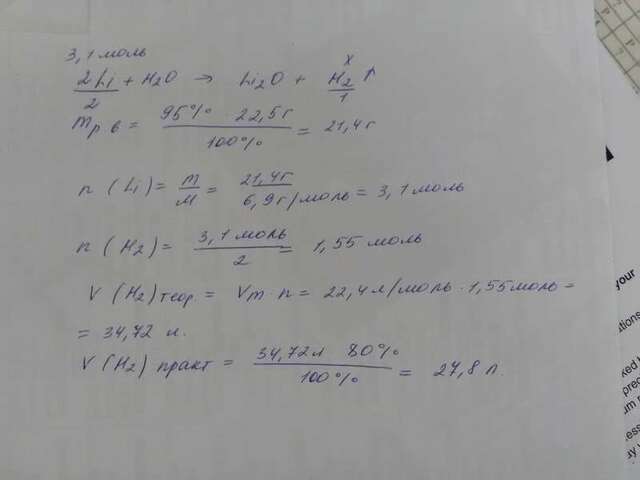 3,1 моль x
2Li/2 + H2O → Li2O + H2/1 ↑
mрв = 95% · 22,5г / 100% = 21,4г
n (Li) = m/M = 21,4г / 6,9г/моль = 3,1 моль
n (H2) = 3,1 моль / 2 = 1,55 моль
V (H2) теор. = Vm · n = 22,4 л/моль · 1,55 моль =
= 34,72 л.
V (H2) практ = 34,72л 80% / 100% = 27,8 л.
your